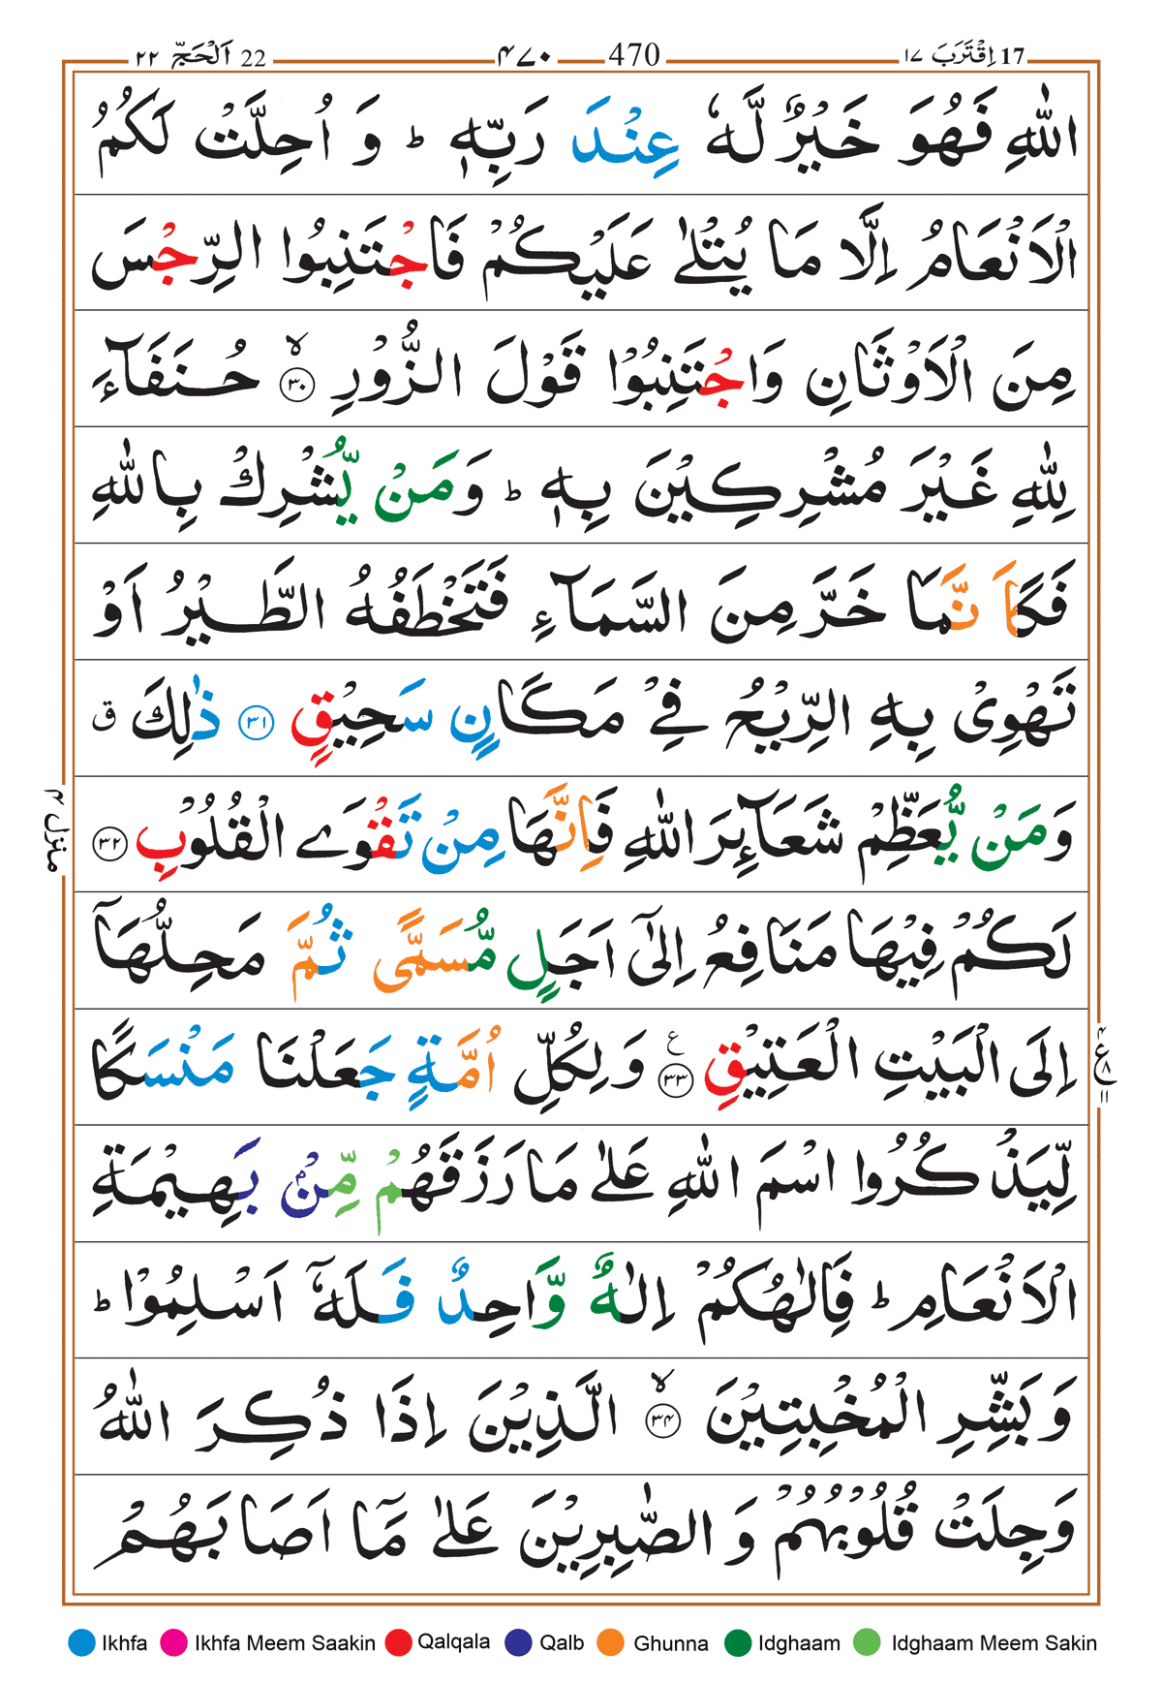 22 اَلْحَجّ ٢٢ 470 ٤٧٠ 17 اِقْتَرَبَ ١٧
اللّٰهِ فَهُوَ خَيْرٌ لَّهٗ عِنْدَ رَبِّهٖ ؕ وَ اُحِلَّتْ لَكُمُ
الْاَنْعَامُ اِلَّا مَا يُتْلٰى عَلَيْكُمْ فَاجْتَنِبُوا الرِّجْسَ
مِنَ الْاَوْثَانِ وَاجْتَنِبُوْا قَوْلَ الزُّوْرِ ۙ‏ ٣٠ حُنَفَآءَ
لِلّٰهِ غَيْرَ مُشْرِكِيْنَ بِهٖ ؕ وَمَنْ يُّشْرِكْ بِاللّٰهِ
فَكَاَ نَّمَا خَرَّ مِنَ السَّمَآءِ فَتَخْطَفُهُ الطَّيْرُ اَوْ
تَهْوِىْ بِهِ الرِّيْحُ فِىْ مَكَانٍ سَحِيْقٍ ٣١ ذٰلِكَ ق
وَمَنْ يُّعَظِّمْ شَعَآئِرَ اللّٰهِ فَاِنَّهَا مِنْ تَقْوَى الْقُلُوْبِ ٣٢
منزل ٤
لَكُمْ فِيْهَا مَنَافِعُ اِلٰٓى اَجَلٍ مُّسَمًّى ثُمَّ مَحِلُّهَاۤ
اِلَى الْبَيْتِ الْعَتِيْقِ ٣٣ ع وَ لِكُلِّ اُمَّةٍ جَعَلْنَا مَنْسَكًا
لِّيَذْكُرُوا اسْمَ اللّٰهِ عَلٰى مَا رَزَقَهُمْ مِّنْۢ بَهِيْمَةِ
الْاَنْعَامِ ؕ فَاِلٰهُكُمْ اِلٰهٌ وَّاحِدٌ فَلَهٗۤ اَسْلِمُوْا ؕ
وَبَشِّرِ الْمُخْبِتِيْنَ ۙ ٣٤ الَّذِيْنَ اِذَا ذُكِرَ اللّٰهُ
وَجِلَتْ قُلُوْبُهُمْ وَ الصّٰبِرِيْنَ عَلٰى مَاۤ اَصَابَهُمْ
Ikhfa Ikhfa Meem Saakin Qalqala Qalb Ghunna Idghaam Idghaam Meem Sakin